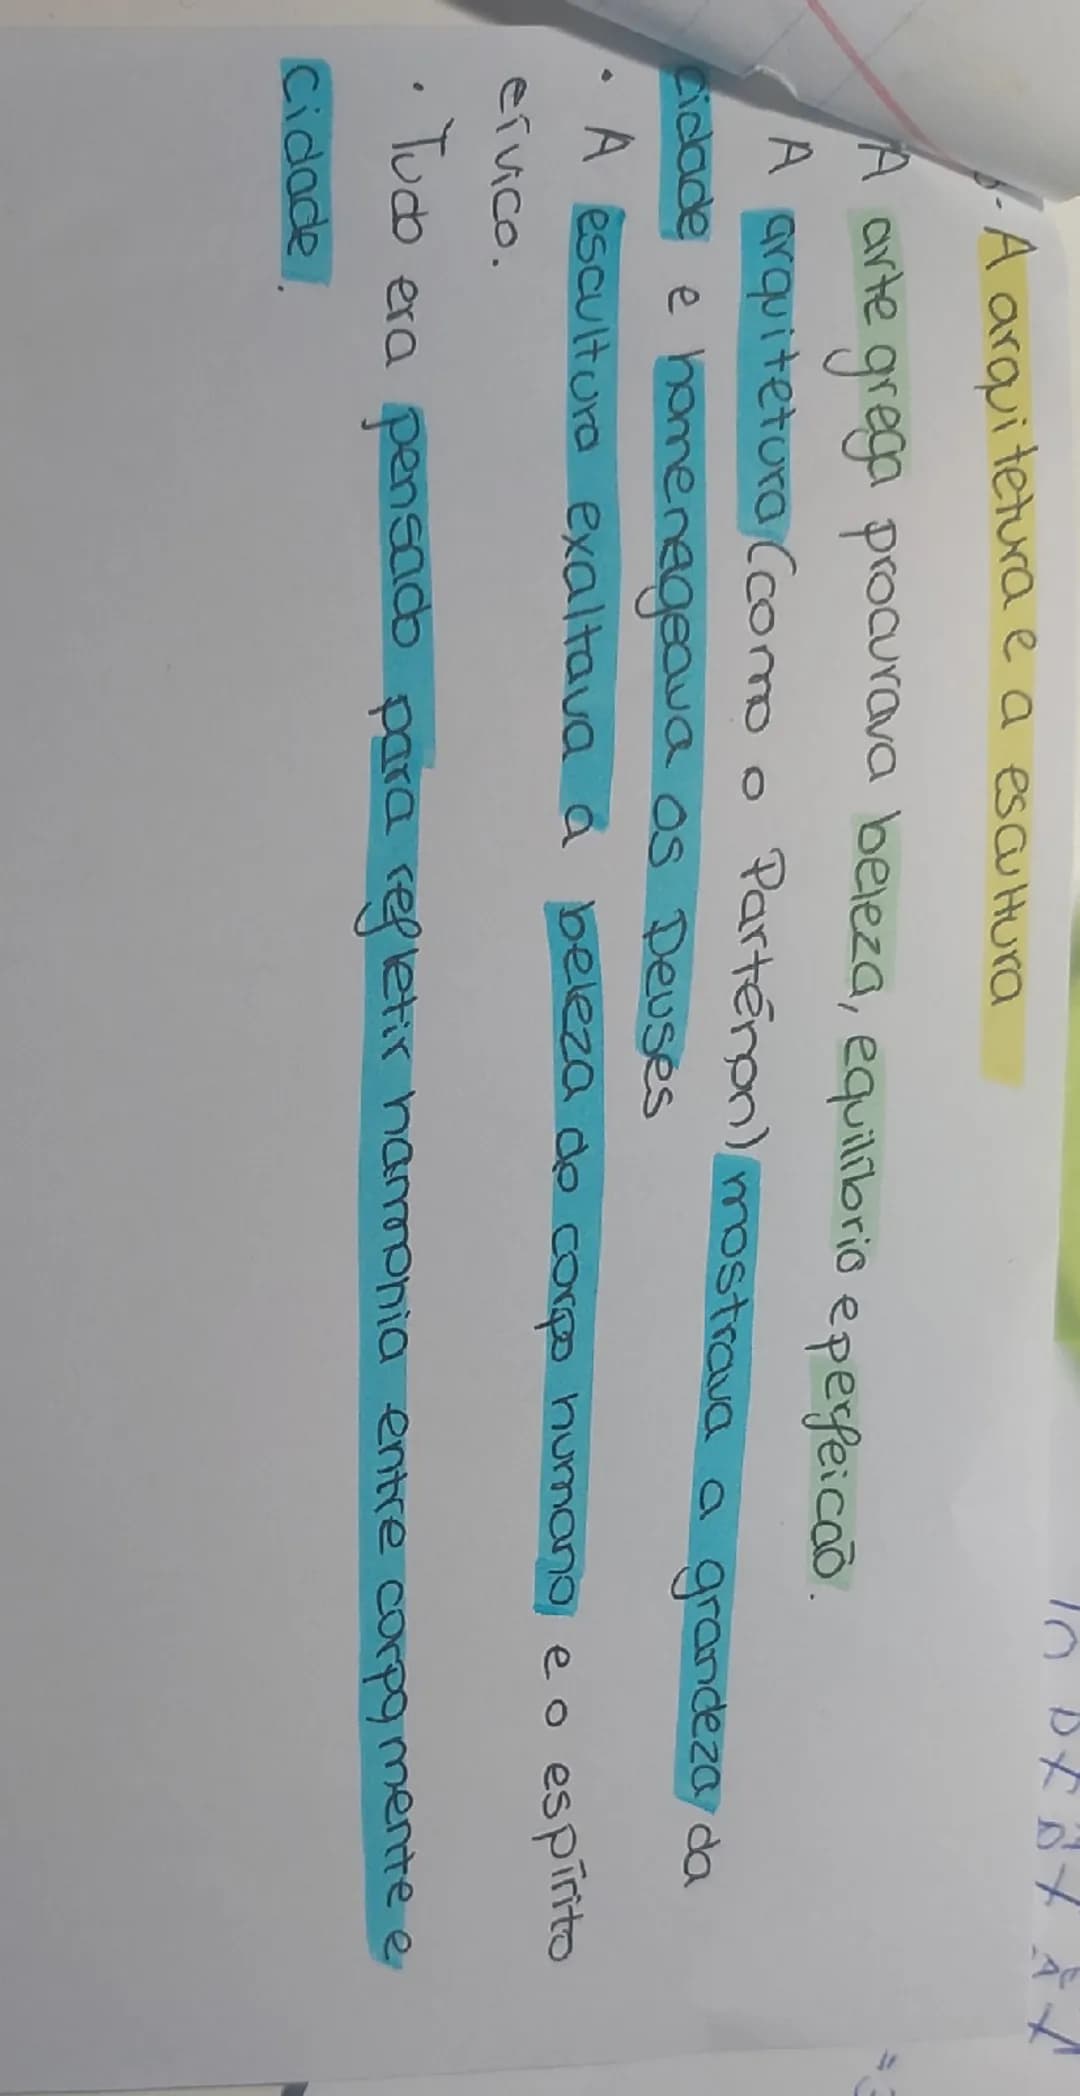 - A arquitetura e a escultura
A arte grega procurava beleza, equilíbrio e perfeicão.
A arquitetura (como o Parténon) mostrava a grandeza da
cidade e homenageava os Deuses
• A escultura exaltava a beleza do corpo humano e o espírito
cívico.
• Tudo era pensado para refletir harmonia entre corpo, mente e
cidade.